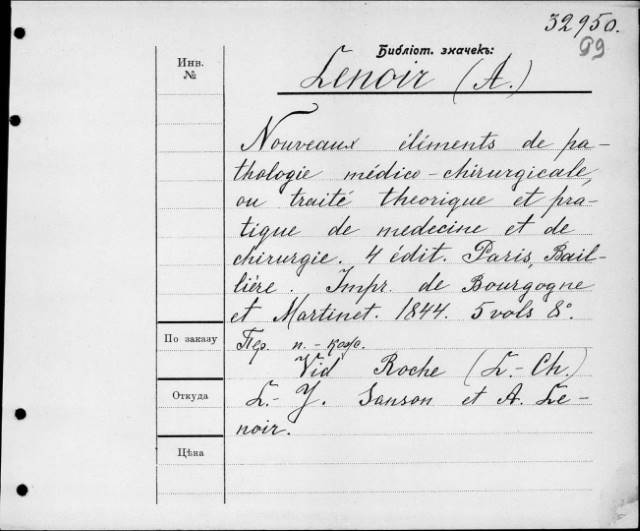 32950.
99
Библіот. значекъ:
Инв.
№
Lenoir (A.)
Nouveaux éléments de pa-
thologie médico-chirurgicale,
ou traité theorique et pra-
tique de medecine et de
chirurgie. 4 édit. Paris, Bail-
lière. Impr. de Bourgogne
et Martinet. 1844. 5 vols 8°.
По заказу
Пер. п.-кож.
Vid Roche (L.-Ch.)
Откуда
L.-J. Sanson et A. Le-
noir.
Цѣна